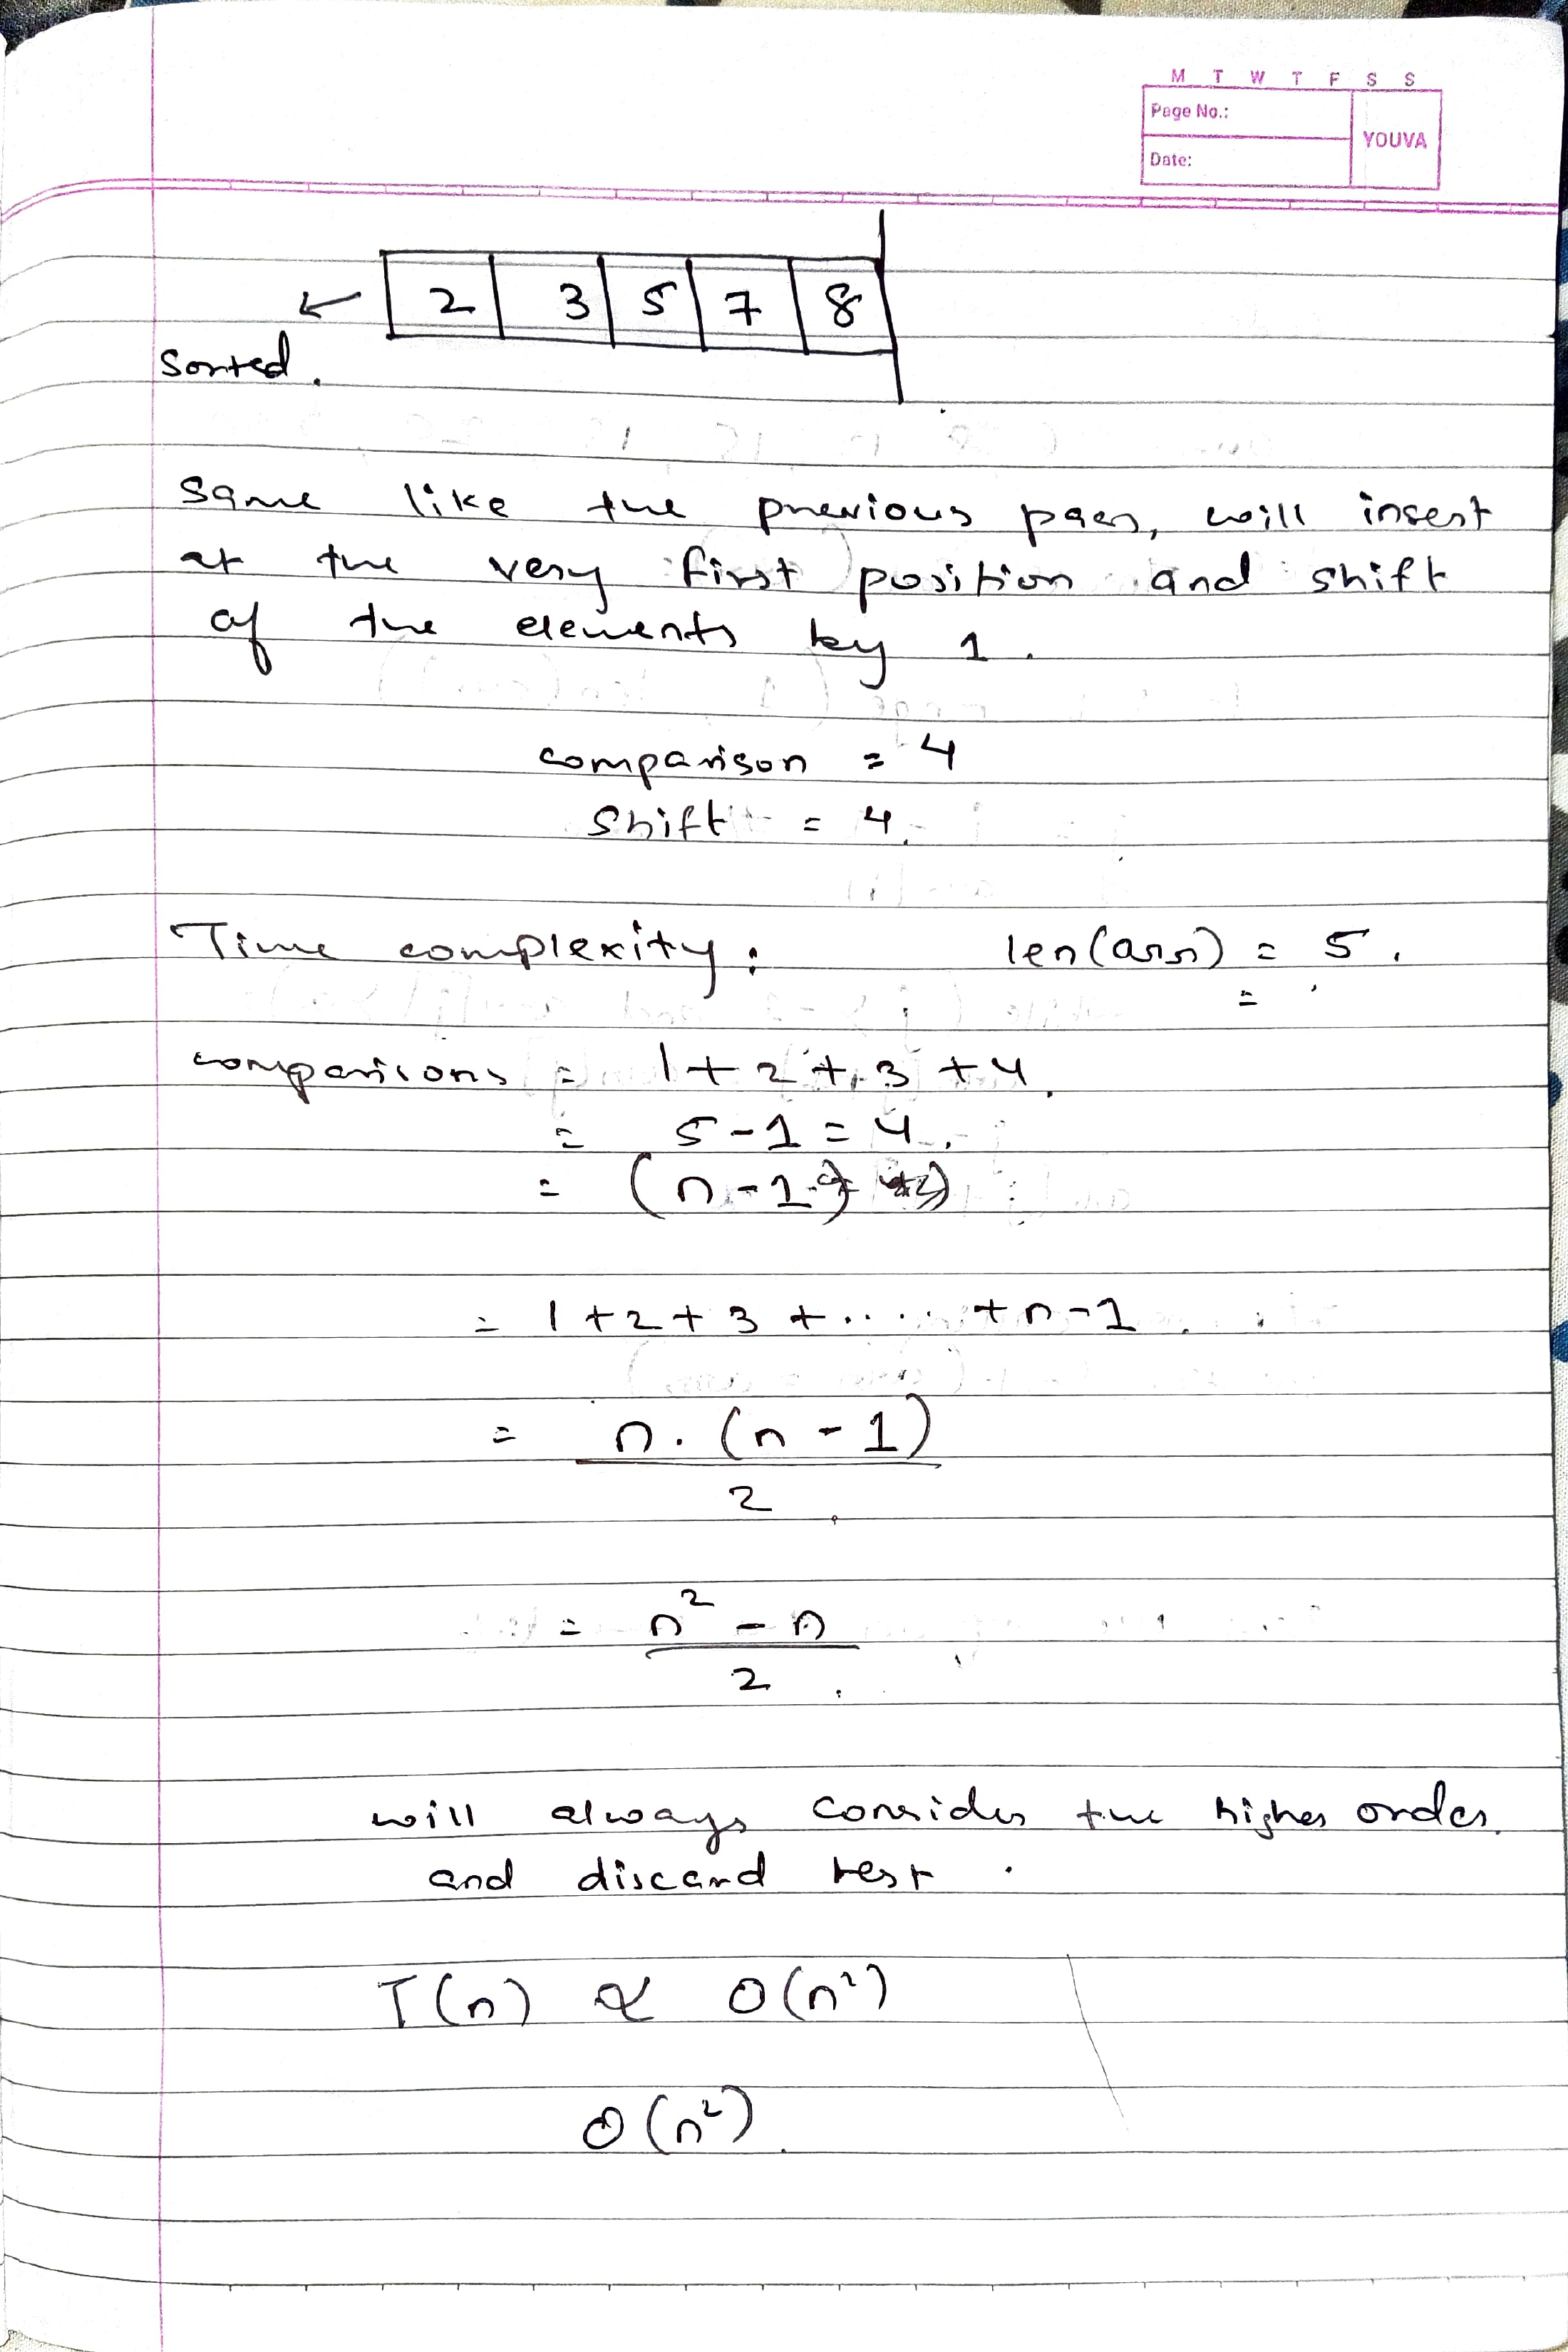 M T W T F S S
Page No.:
YOUVA
Date:
2 3 5 7 8
Sorted.
Same like the previous pass, will insert
at the very first position and shift
of the elements by 1.
comparison = 4
Shift = 4.
Time complexity: len(arr) = 5.
comparisons = 1+2+3+4.
= 5-1=4.
= (n-1)
= 1+2+3+....+n-1.
= n.(n-1)
2.
= n² - n
2.
will always consider the higher order.
and discard rest.
T(n) ∝ O(n²)
O(n²).